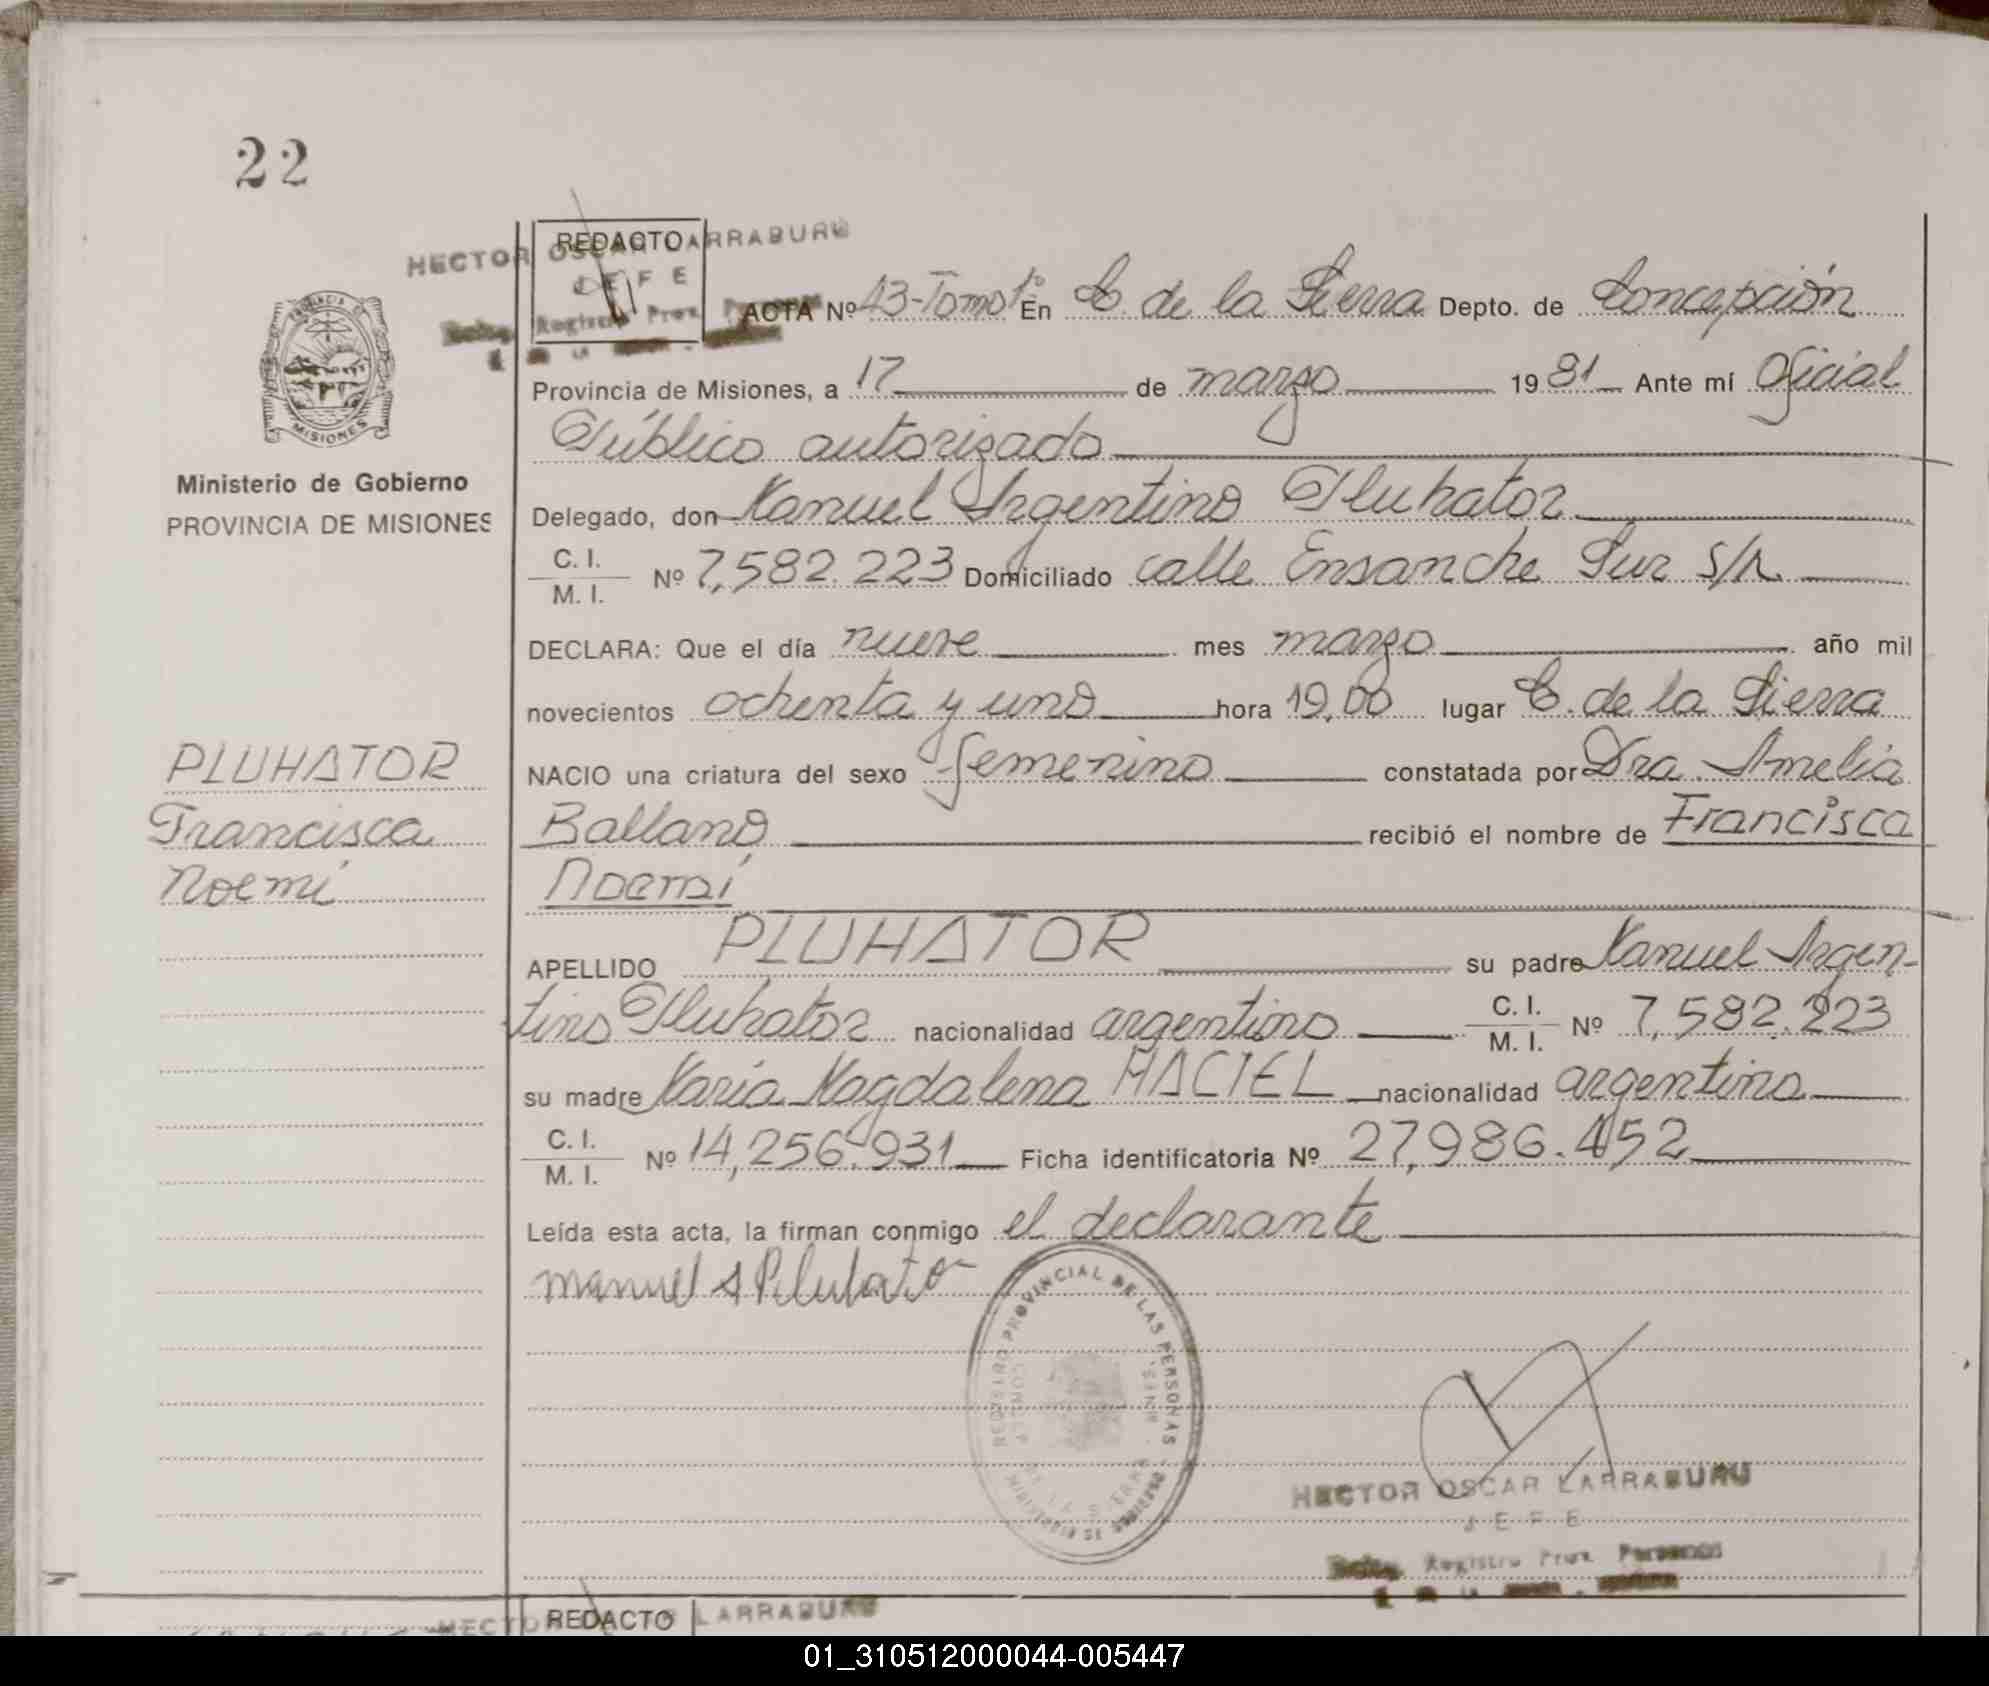 22
HECTOR OSCAR LARRABURU
REDACTO
JEFE
Registro Prov. Personas
ACTA Nº 43-Tomo 1º En C. de la Sierra Depto. de Concepción
Provincia de Misiones, a 17 de marzo 1981 Ante mí Oficial
Público autorizado
PROVINCIA DE
MISIONES
Ministerio de Gobierno
PROVINCIA DE MISIONES
Delegado, don Manuel Argentino Pluhator
C. I.
M. I. Nº 7,582.223 Domiciliado calle Ensanche Sur S/n
DECLARA: Que el día nueve mes marzo año mil
novecientos ochenta y uno hora 19,00 lugar C. de la Sierra
NACIO una criatura del sexo femenino constatada por Dra. Amelia
Balland recibió el nombre de Francisca
Noemí
PLUHATOR
Francisca
Noemí
APELLIDO PLUHATOR su padre Manuel Argen-
tino Pluhator nacionalidad argentino C. I.
M. I. Nº 7,582.223
su madre María Magdalena MACIEL nacionalidad argentina
C. I.
M. I. Nº 14,256.931 Ficha identificatoria Nº 27,986.452
Leída esta acta, la firman conmigo el declarante
manuel A Pluhator
REGISTRO PROVINCIAL DE LAS PERSONAS
HECTOR OSCAR LARRABURU
JEFE
Registro Prov. Personas
HECTOR LARRABURU
REDACTO
01_310512000044-005447